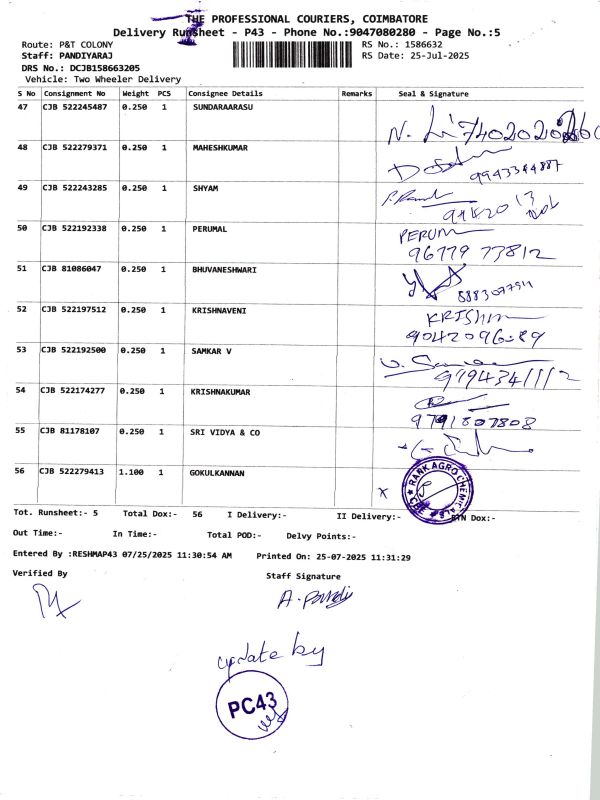 THE PROFESSIONAL COURIERS, COIMBATORE
Delivery Runsheet - P43 - Phone No.:9047080280 - Page No.:5
Route: P&T COLONY RS No.: 1586632
Staff: PANDIYARAJ RS Date: 25-Jul-2025
DRS No.: DCJB158663205
Vehicle: Two Wheeler Delivery
S No Consignment No Weight PCS Consignee Details Remarks Seal & Signature
47 CJB 522245487 0.250 1 SUNDARAARASU
48 CJB 522279371 0.250 1 MAHESHKUMAR
9943344887
49 CJB 522243285 0.250 1 SHYAM
50 CJB 522192338 0.250 1 PERUMAL PERUM
96779 73812
51 CJB 81086047 0.250 1 BHUVANESHWARI
52 CJB 522197512 0.250 1 KRISHNAVENI KRISHN
9042096289
53 CJB 522192500 0.250 1 SAMKAR V
54 CJB 522174277 0.250 1 KRISHNAKUMAR
9791807808
55 CJB 81178107 0.250 1 SRI VIDYA & CO
56 CJB 522279413 1.100 1 GOKULKANNAN x RANK AGRO CHEMICALS CBE
Tot. Runsheet:- 5 Total Dox:- 56 I Delivery:- II Delivery:- RTN Dox:-
Out Time:- In Time:- Total POD:- Delvy Points:-
Entered By :RESHMAP43 07/25/2025 11:30:54 AM Printed On: 25-07-2025 11:31:29
Verified By Staff Signature
A. Pandi
update by
PC43